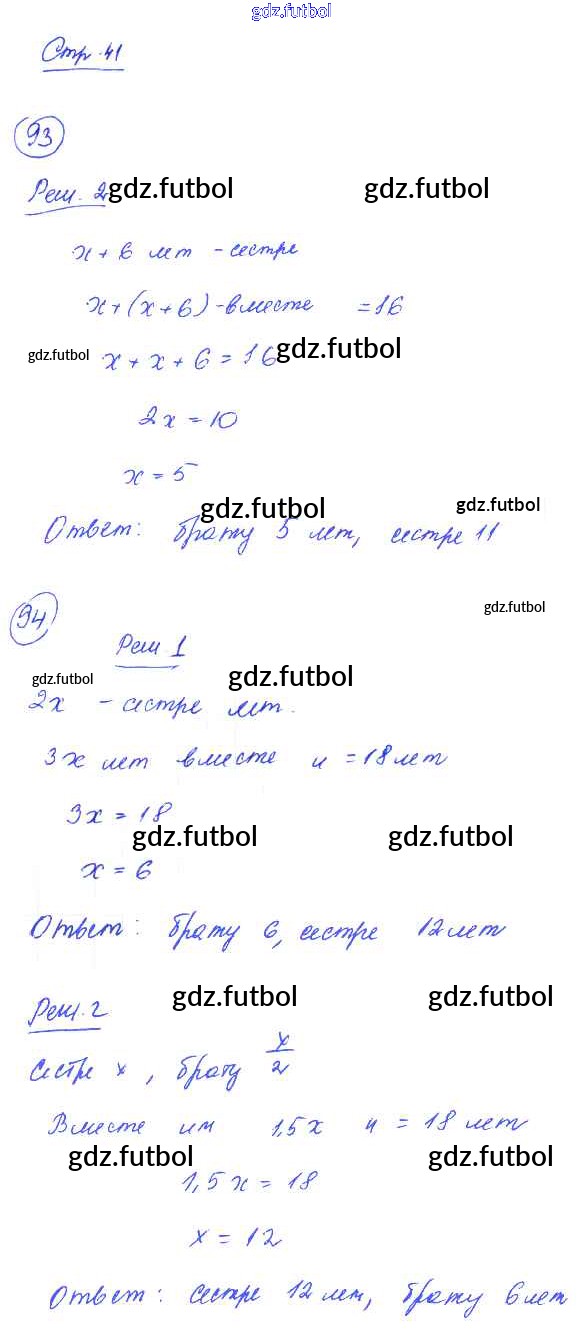 gdz.futbol
Стр 41
93
Реш. 2 gdz.futbol gdz.futbol
х + 6 лет - сестре
х + (х + 6) - вместе = 16
gdz.futbol х + х + 6 = 16 gdz.futbol
2х = 10
х = 5
gdz.futbol gdz.futbol
Ответ: брату 5 лет, сестре 11
gdz.futbol
94
Реш 1
gdz.futbol gdz.futbol
2х - сестре лет.
3х лет вместе и = 18 лет
3х = 18
gdz.futbol gdz.futbol
х = 6
Ответ: брату 6, сестре 12 лет
Реш. 2 gdz.futbol gdz.futbol
Сестре х, брату х/2
Вместе им 1,5 х и = 18 лет
gdz.futbol gdz.futbol
1,5 х = 18
х = 12
Ответ: сестре 12 лет, брату 6 лет